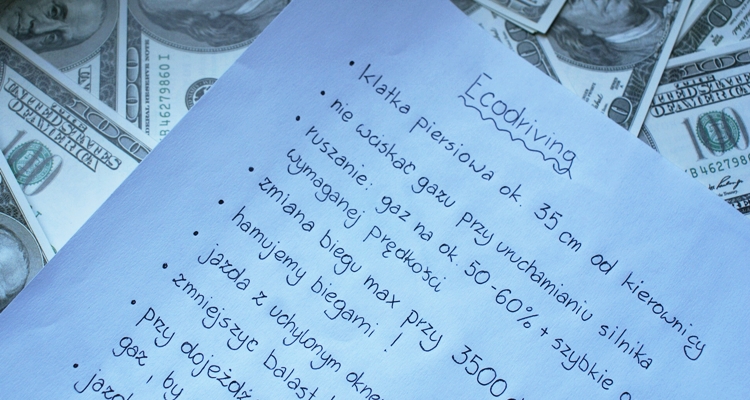 Ecodriving
• klatka piersiowa ok. 35 cm od kierownicy
• nie wciskać gazu przy uruchamianiu silnika
• ruszanie: gaz na ok. 50-60% + szybkie
wymaganej prędkości
• zmiana biegu max przy 3500
• hamujemy biegami !
• jazda z uchylonym
• zmniejszyć balast
• przy
gaz i by
•
100
UNITED STATES
OF AMERICA
100
B46279860I
UNITED STATES
OF AMERICA
100